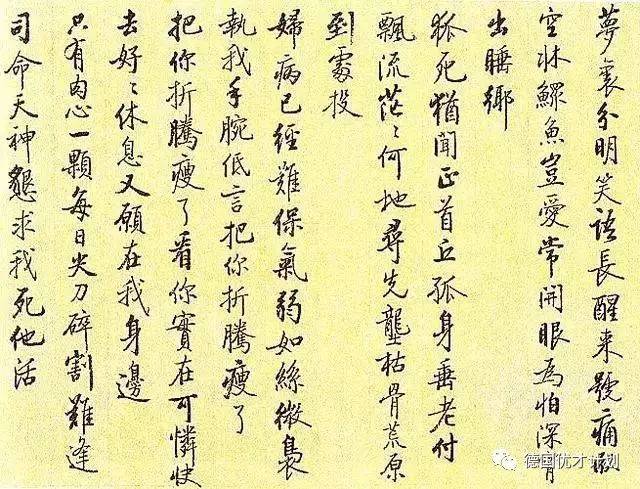 夢裏分明笑語長醒来號痛卧
空牀鰥魚豈愛常開眼為怕深宵
出睡鄉
狐死猶聞正首丘孤身垂老付
飄流茫々何地尋先壟枯骨荒原
到處投
婦病已經難保氣弱如絲微裊
執我手腕低言把你折騰瘦了
把你折騰瘦了看你實在可憐快
去好々休息又願在我身邊
只有肉心一顆每日尖刀碎割難逢
司命天神懇求我死他活
德国优才计划